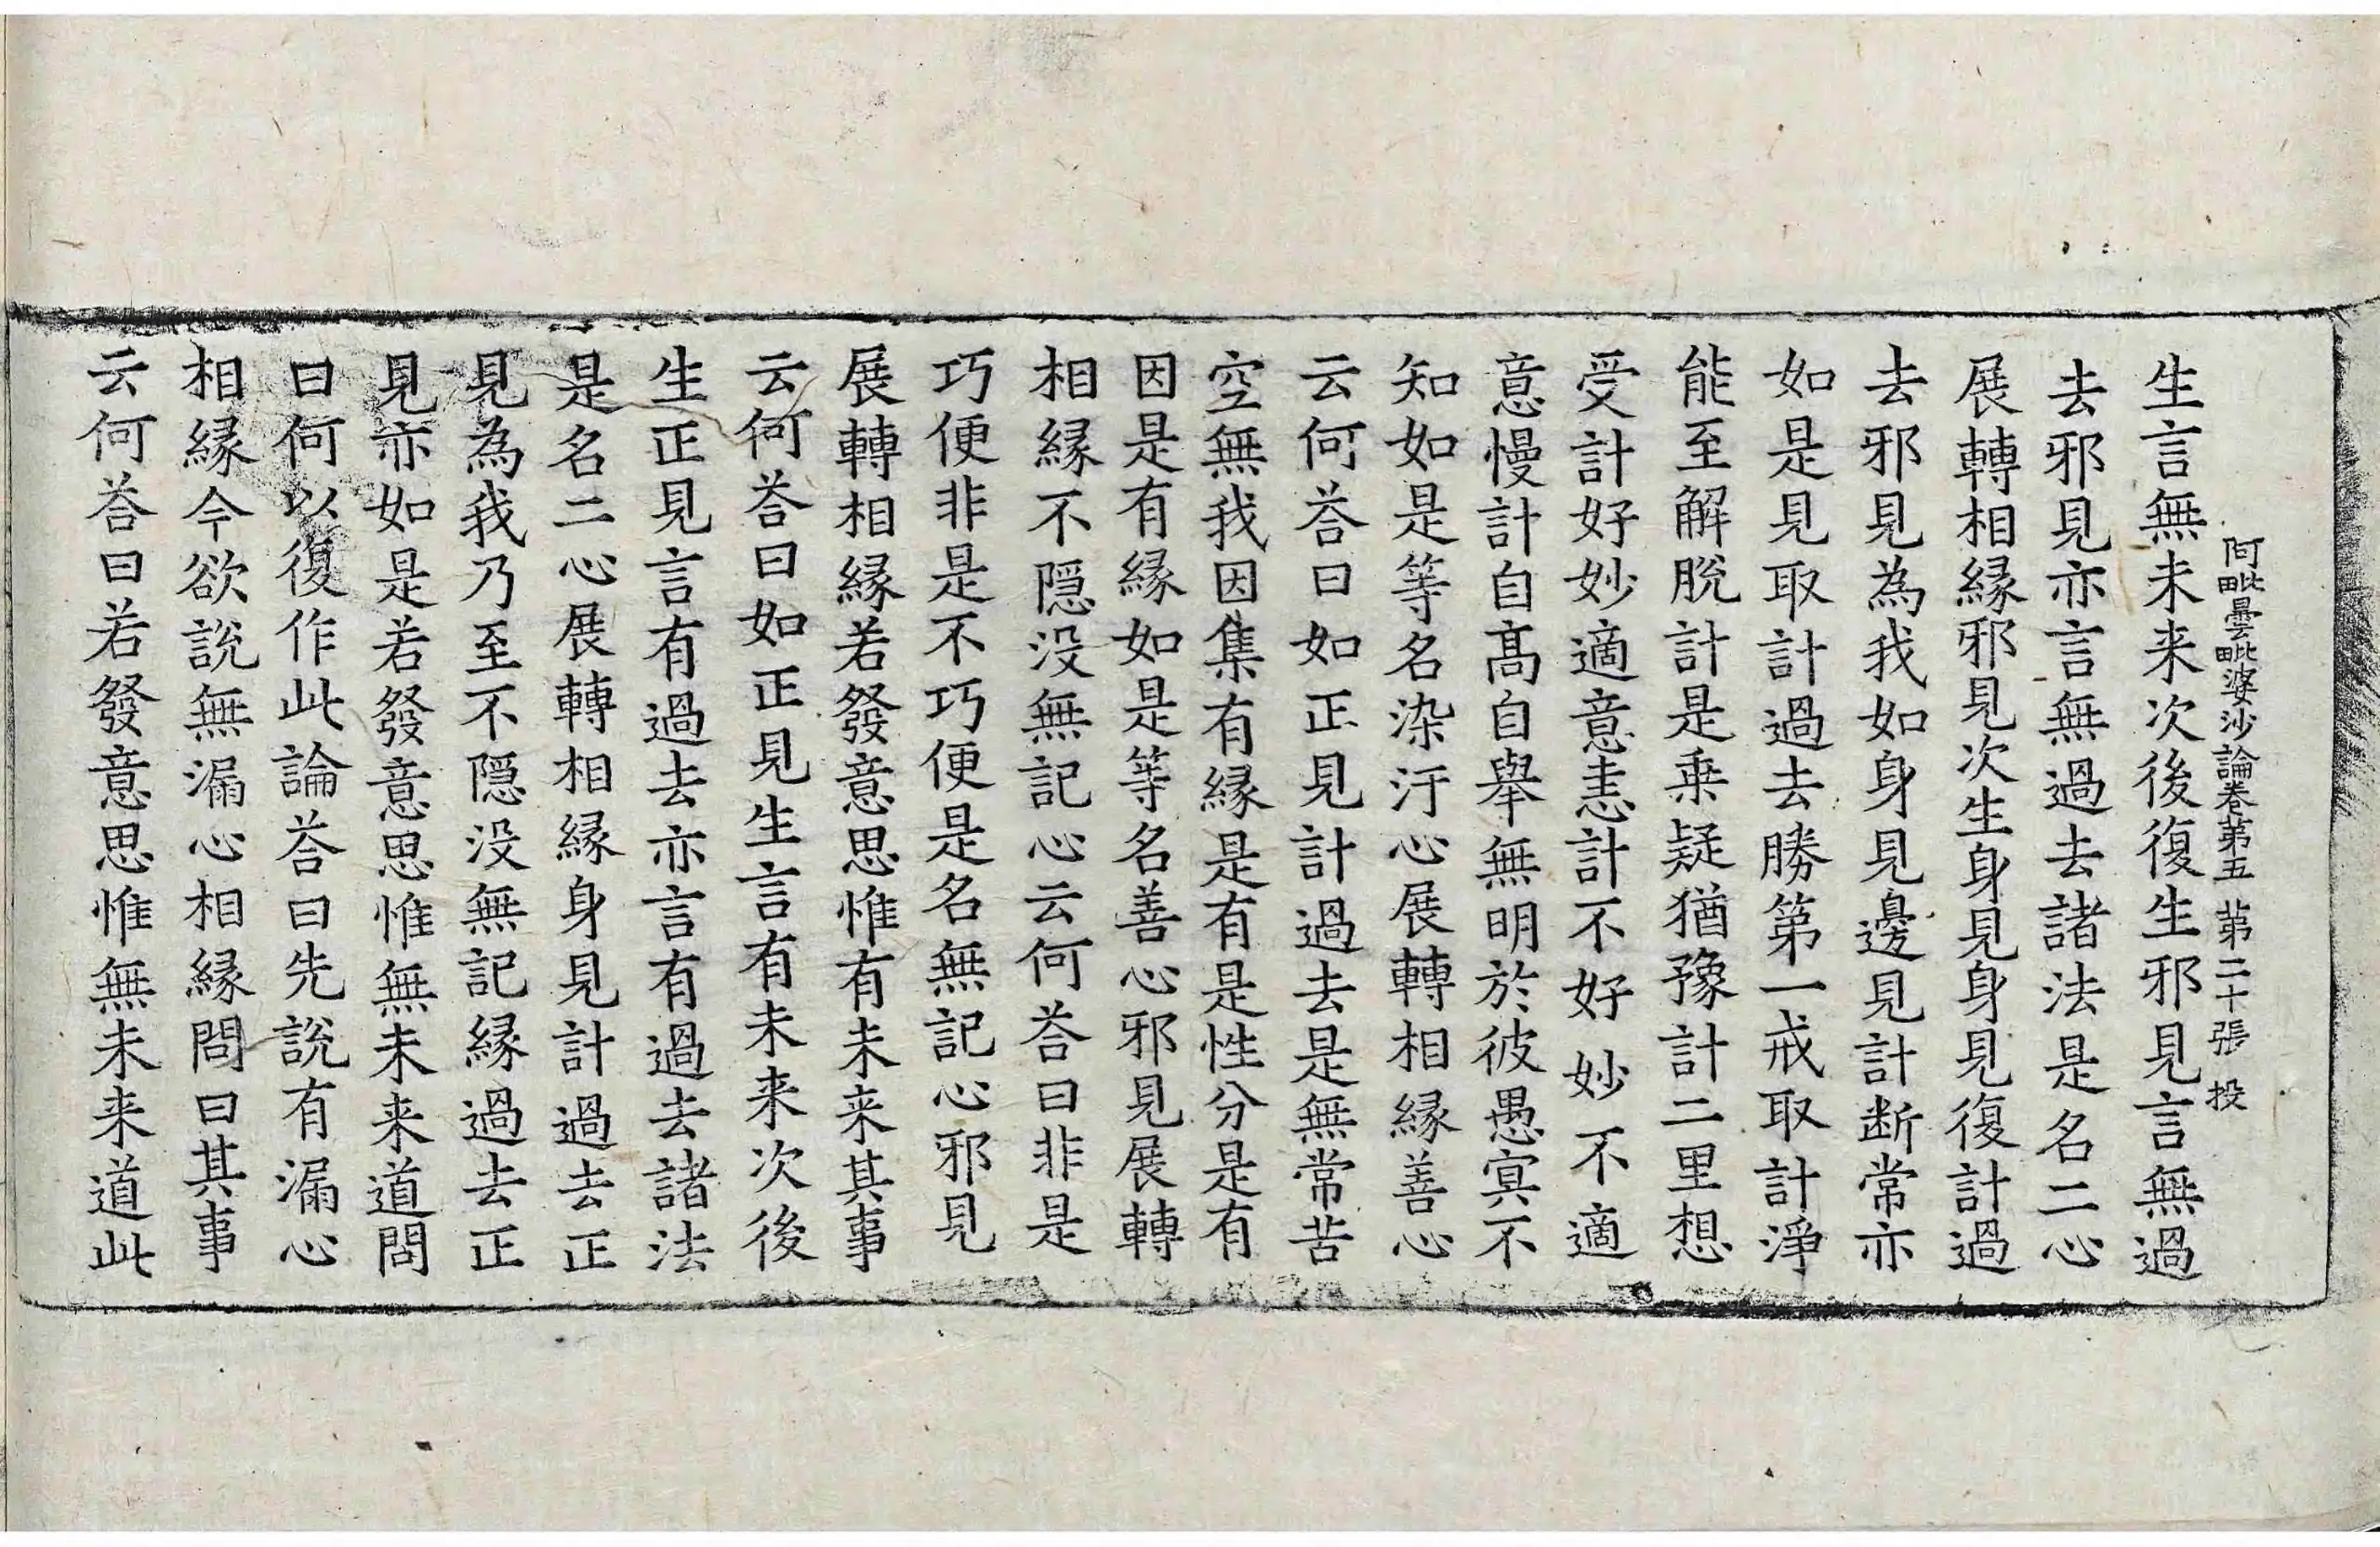 阿毗曇毗婆沙論卷第五 第二十張 投
生言無未来次後復生邪見言無過
去邪見亦言無過去諸法是名二心
展轉相緣邪見次生身見身見復計過
去邪見為我如身見邊見計断常亦
如是見取計過去勝第一戒取計淨
能至解脫計是乗疑猶豫計二里想
受計好妙適意恚計不好妙不適
意慢計自髙自舉無明於彼愚冥不
知如是等名染汙心展轉相緣善心
云何荅曰如正見計過去是無常苦
空無我因集有緣是有是性分是有
因是有緣如是等名善心邪見展轉
相緣不隠没無記心云何荅曰非是
巧便非是不巧便是名無記心邪見
展轉相緣若發意思惟有未来其事
云何荅曰如正見生言有未来次後
生正見言有過去亦言有過去諸法
是名二心展轉相緣身見計過去正
見為我乃至不隠没無記緣過去正
見亦如是若發意思惟無未来道問
曰何以復作此論荅曰先說有漏心
相緣今欲說無漏心相緣問曰其事
云何荅曰若發意思惟無未来道此